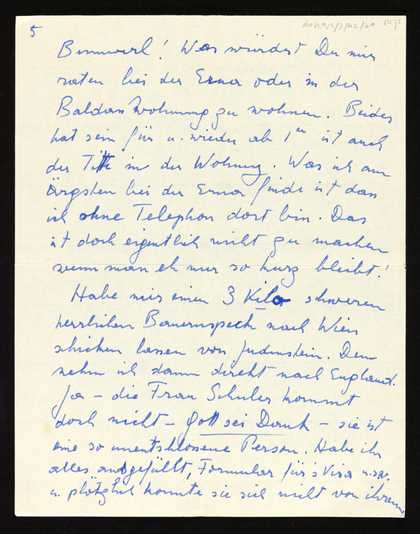 5
Bimmerl! Was würdest Du mir
raten bei der Erna oder in der
Baldass Wohnung zu wohnen. Beides
hat sein für u. wieder ab 1ten ist auch
der Titti in der Wohnung. Was ich am
ärgsten bei der Erna finde ist dass
ich ohne Telephon dort bin. Das
ist doch eigentlich nicht zu machen
wenn man eh nur so kurz bleibt!
Habe mir einen 3 Kilo schweren
herrlichen Bauernspeck nach Wien
schicken lassen von Judenstein. Den
nehm ich dann direkt nach England.
Ja – die Frau Schuler kommt
doch nicht – Gott sei Dank – sie ist
eine so unentschlossene Person. Habe ihr
alles ausgefüllt, Formular für's Visa u.s.w.
u. plötzlich konnte sie sich nicht von ihrem